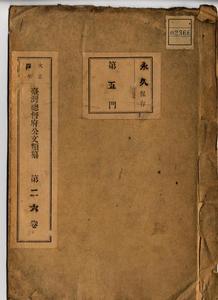 永久保存
第五門
大正
臺灣總督府公文類纂 第二六卷
02366